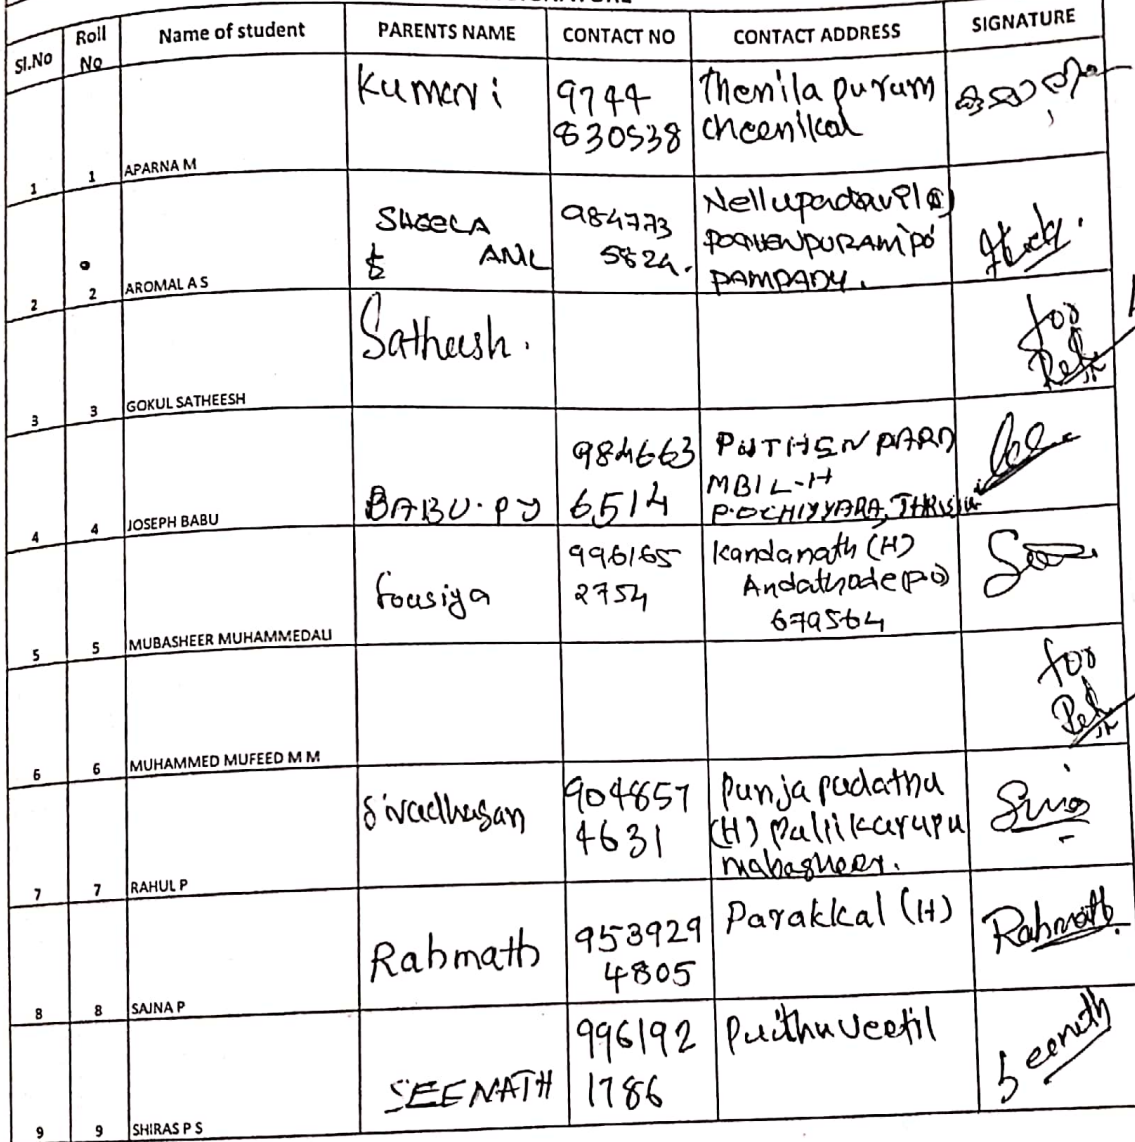 Sl.No Roll No Name of student PARENTS NAME CONTACT NO CONTACT ADDRESS SIGNATURE
1 1 APARNA M Kumari 9744 Thenilapuram
830538 cheenikal
2 2 AROMAL A S SHEELA 984773 Nellupadavil
& ANIL 5824. PO
PAMPADY.
3 3 GOKUL SATHEESH Satheesh. for
4 4 JOSEPH BABU BABU. P J 984663 PUTHENPARA
6514 MBIL-H
P.O CHIYYARA, THRISSUR
5 5 MUBASHEER MUHAMMEDALI fousiya 996165 Kandanath (H)
2754 Andathode (P.O)
679564
6 6 MUHAMMED MUFEED M M for
7 7 RAHUL P Sivadhasan 904857 Punjapadathu
4631 (H) Pallikarupu
8 8 SAJNA P Rahmath 953929 Parakkal (H) Rahmath
4805
9 9 SHIRAS P S SEENATH 996192 Puithuveetil Seenath
1786